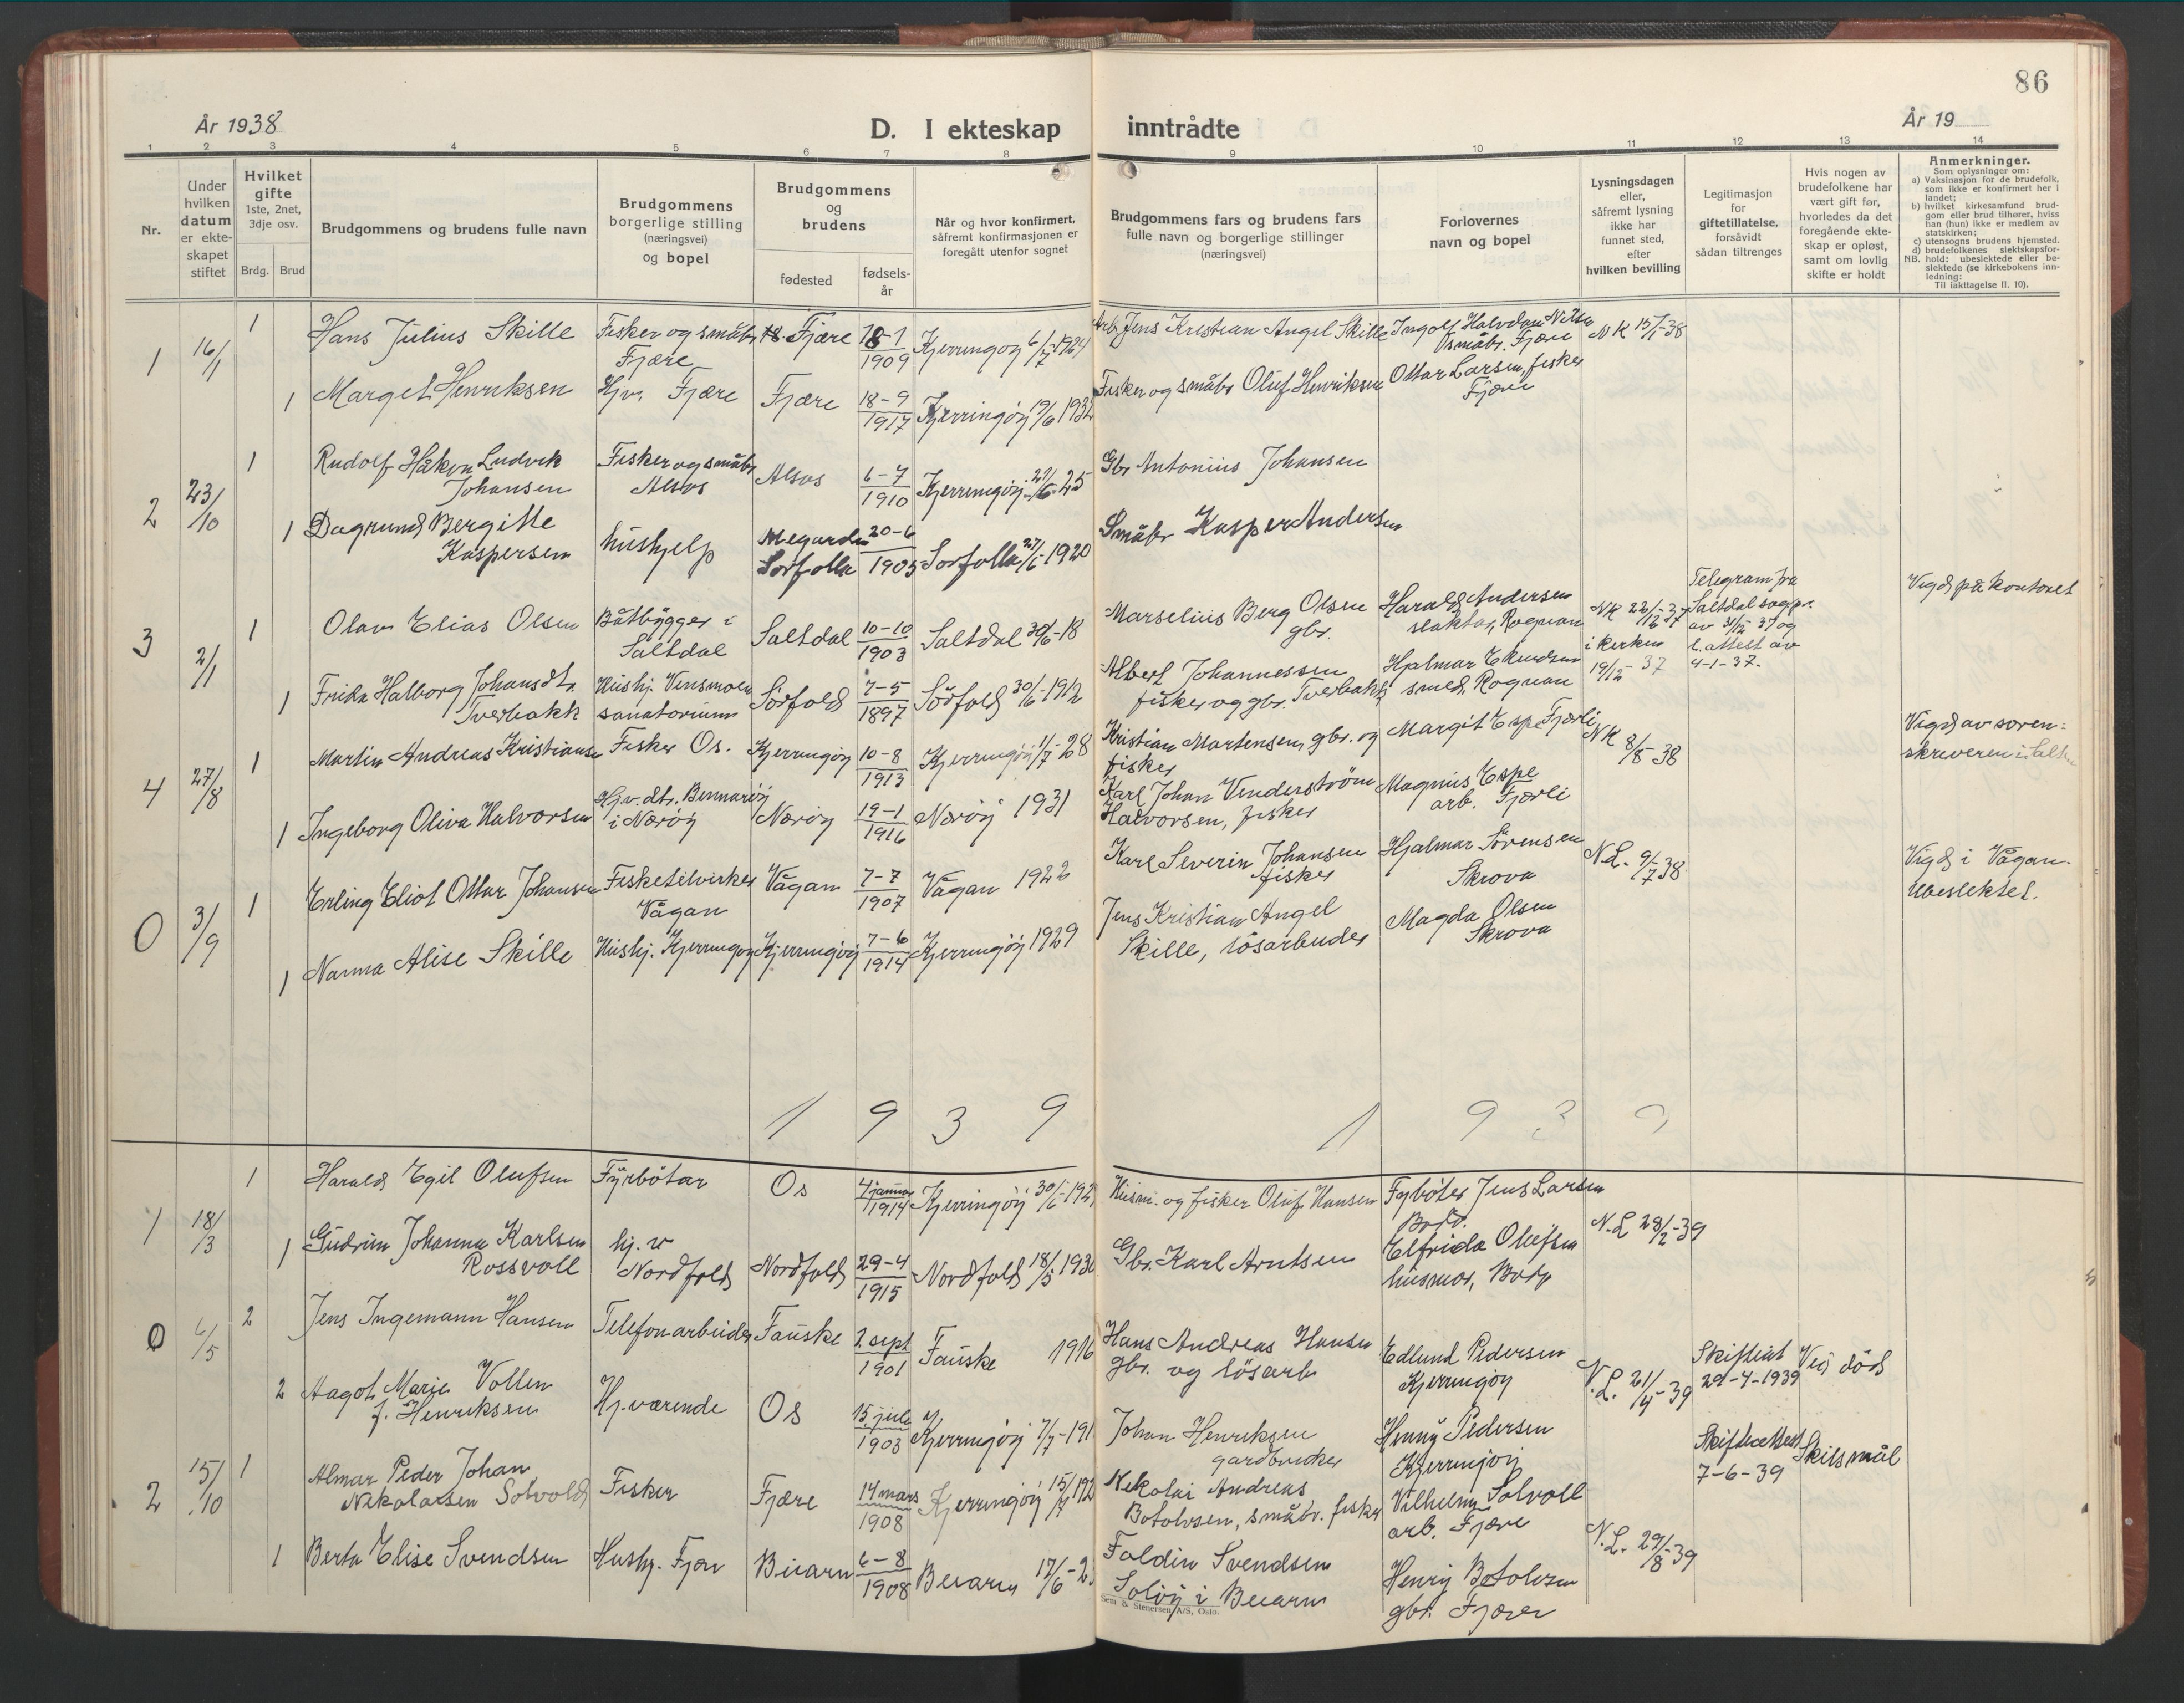 86
År 1938
D. I ekteskap inntrådte
År 19
1 2 3 4 5 6 7 8 9 10 11 12 13 14
Nr.
Under
hvilken
datum
er ekte-
skapet
stiftet
Hvilket
gifte
1ste, 2net,
3dje osv.
Brdg. Brud
Brudgommens og brudens fulle navn
Brudgommens
borgerlige stilling
(næringsvei)
og bopel
Brudgommens
og
brudens
fødested
fødsels-
år
Når og hvor konfirmert,
såfremt konfirmasjonen er
foregått utenfor sognet
Brudgommens fars og brudens fars
fulle navn og borgerlige stillinger
(næringsvei)
Forlovernes
navn og bopel
Lysningsdagen
eller,
såfremt lysning
ikke har
funnet sted,
efter
hvilken bevilling
Legitimasjon
for
giftetillatelse,
forsåvidt
sådan tiltrenges
Hvis nogen av
brudefolkene har
vært gift før,
hvorledes da det
foregående ekte-
skap er opløst,
samt om lovlig
skifte er holdt
Anmerkninger.
Som oplysninger om:
a) Vaksinasjon for de brudefolk,
som ikke er konfirmert her i
landet;
b) hvilket kirkesamfund brud-
gom eller brud tilhører, hviss
han (hun) ikke er medlem av
statskirken;
c) utensogns brudens hjemsted.
d) brudefolkenes slektskapsfor-
NB. hold: ubeslektede eller be-
slektede (se kirkebokens inn-
ledning:
Til iakttagelse II. 10).
1 16/1 1 Hans Julius Skille Fisker og småbr. Fjære Fjære 18-1 1909 Kjerringøy 6/7-1924 Arb. Jens Kristian Angel Skille Ingolf Halvdan Nilsen småbr. Fjære NK 15/1-38
1 Marget Henriksen Hjv. Fjære Fjære 18-9 1917 Kjerringöy 19/6 1932 Fisker og småbr Oluf Henriksen Ottar Larsen, fisker Fjære
2 23/10 1 Rudolf Håkon Ludvik Johansen Fisker og småbr Alsos Alsos 6-7 1910 Kjerringöy 21/6-25 Gbr Antonius Johansen
1 Dagrund Bergitte Kaspersen hushjelp Megarden Sørfolla 20-6 1905 Sørfolla 27/6-1920 Småbr Kasper Andersen
3 2/1 1 Olav Elias Olsen Båtbygger i Saltdal Saltdal 10-10 1903 Saltdal 30/6-18 Marselius Berg Olsen gbr. Harald Andersen slaktar, Rognan NK 22/12-37 i kirken 19/12-37 Telegram fra Saltdal sogpr. av 31/12-37 og l. attest av 4-1-37. Vigd på kontoret
1 Frida Halborg Johansdtr. Tverbakk Hushj. Vensmoen sanatorium Sörfold 7-5 1897 Sörfold 30/6-1912 Albert Johannessen fisker og gbr. Tverbakk Hjalmar Knudsen smed, Rognan
4 27/8 1 Martin Andreas Kristiansen Fisker Os. Kjerringöy 10-8 1913 Kjerringöy 1/7-28 Kristian Martensen, gbr. og fisker Margit Espe Fjærli NK 8/8-38 Vigd av soren-skriveren i Salten
1 Ingeborg Oliva Halvorsen Hjv. dtr. Bennaröy i Næröy Næröy 19-1 1916 Næröy 1931 Karl Johan Venderström Halvorsen, fisker Magnus Espe arb. Fjærli
0 3/9 1 Erling Eliot Ottar Johansen Fisketilvirker Vågan Vågan 7-7 1907 Vågan 1922 Karl Severin Johansen fisker Hjalmar Sörensen Skrova N.L. 9/7-38 Vigd i Vågan. Ubeslektet.
1 Nanna Alise Skille Hushj. Kjerringøy Kjerringöy 7-6 1914 Kjerringöy 1929 Jens Kristian Angel Skille, lösarbeider Magda Olsen Skrova
1 9 3 9 1 9 3 9
1 18/3 1 Harald Egil Olufsen Fyrbötar Os 4 januar 1914 Kjerringöy 30/6-192 Husm. og fisker Oluf Hansen Fyrböter Jens Larsen Bodö. N.L 28/2-39
1 Gudrun Johanna Karlsen Rossvoll hj. v Nordfold Nordfold 29-4 1915 Nordfold 18/5 1930 Gbr. Karl Arntsen Elfrida Olufsen husmor, Bodø
0 6/5 2 Jens Ingemann Hansen Telefonarbeider Fauske 2. sept 1901 Fauske 1916 Hans Andreas Hansen gbr. og lösarb Edlund Pedersen Kjerringøy N.L. 21/4-39 Skifteat 29-4-1939 Ved död
2 Aagot Marie Vollen f. Henriksen Hj.værende Os 15. juli 1903 Kjerringöy 7/7-191 Johan Henriksen gardbruker Henny Pedersen Kjerringöy Skifteattest 7-6-39 Skilsmål
2 15/10 1 Almar Peder Johan Nikolaisen Solvold Fisker Fjære 14 mars 1908 Kjerringöy 15/7 192 Nikolai Andreas Botolvsen, småbr. fisker Vilhelm Solvoll arb. Fjære N.L. 29/8-39
1 Berta Elise Svendsen Hushj. Fjær Beiarn 6-8 1908 Beiarn 17/6-2 Foldin Svendsen Solöy i Beiarn Henry Botolvsen gbr. Fjærer
Sem & Stenersen A/S, Oslo.